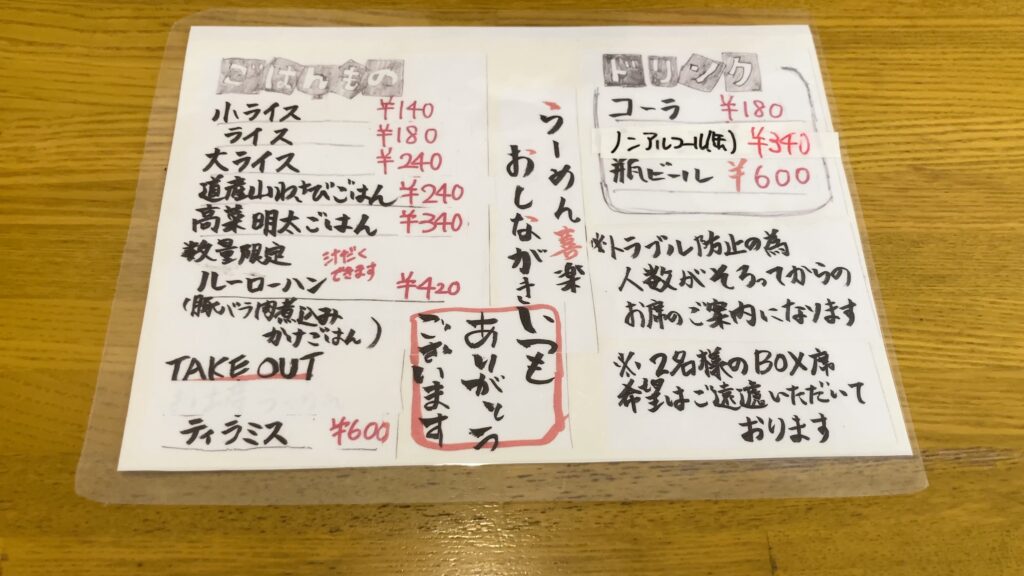 ごはんもの
小ライス ¥140
ライス ¥180
大ライス ¥240
道産山わさびごはん ¥240
高菜明太ごはん ¥340
数量限定
汁だく
できます
ルーローハン ¥420
(豚バラ肉煮込み
がけごはん)
TAKE OUT
ティラミス ¥600
らーめん喜楽
おしながき
いつも
ありがとう
ございます
ドリンク
コーラ ¥180
ノンアルコール(缶) ¥340
瓶ビール ¥600
※トラブル防止の為
人数がそろってからの
お席のご案内になります
※ 2名様のBOX席
希望はご遠慮いただいて
おります